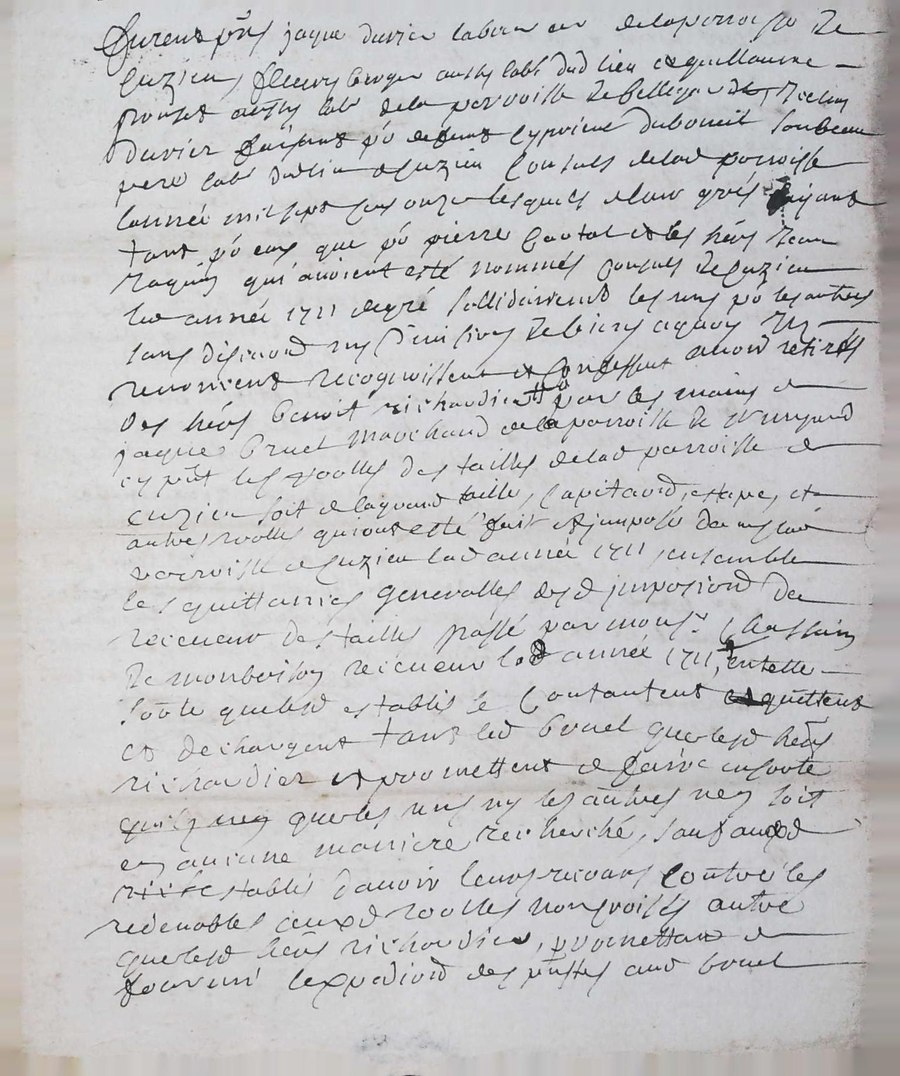 furent p̃ns jaque duvier laboureur de la parroisse de
Cuzieu, fleury berger aussy lab^r dud lieu et guillaume
aussy lab^r de la parroisse de bellegarde,
duvier faisant p̃o Cyprien duboueit son beau
pere lab^r dud lieu de Cuzieu Consuls de lad parroisse
lannée mil sept cens onze lesquels de leur grés
tant p̃o eux que p̃o pierre et les hers Jean
qui avoient esté nommés Consuls de Cuzieu
lad année 1711 de gré sollidairement les uns p̃o les autres
sans division ny de biens
renoncent recognoissent et Confessent avoir retirés
des hers benoit richardier par les mains de
jaque bruel marchand de la parroisse de S^t
cy p̃nt les roolles des tailles de lad parroisse de
cuzieu soit de la grand taille, Capitaõn, estape, et
autres roolles qui ont esté fait et jmposés dans lad
parroisse de Cuzieu lad année 1711, ensemble
les quittances generalles desd jmposiõns du
receveur des tailles passé par mons^r Chassain
de monbrison receveur lad année 1711, en telle
sorte que lesd establis se Contantent quittent
et dechargent tant led bruel que lesd hers
richardier et promettent de faire en sorte
que les uns ny les autres nen soit
en aucune maniere recherché, sauf auxd
establis davoir leurs recours Contre les
redevables auxd roolles non autre
que lesd hers richardier, promettant de
fournir lexpediõn des p̃ntes aud bruel